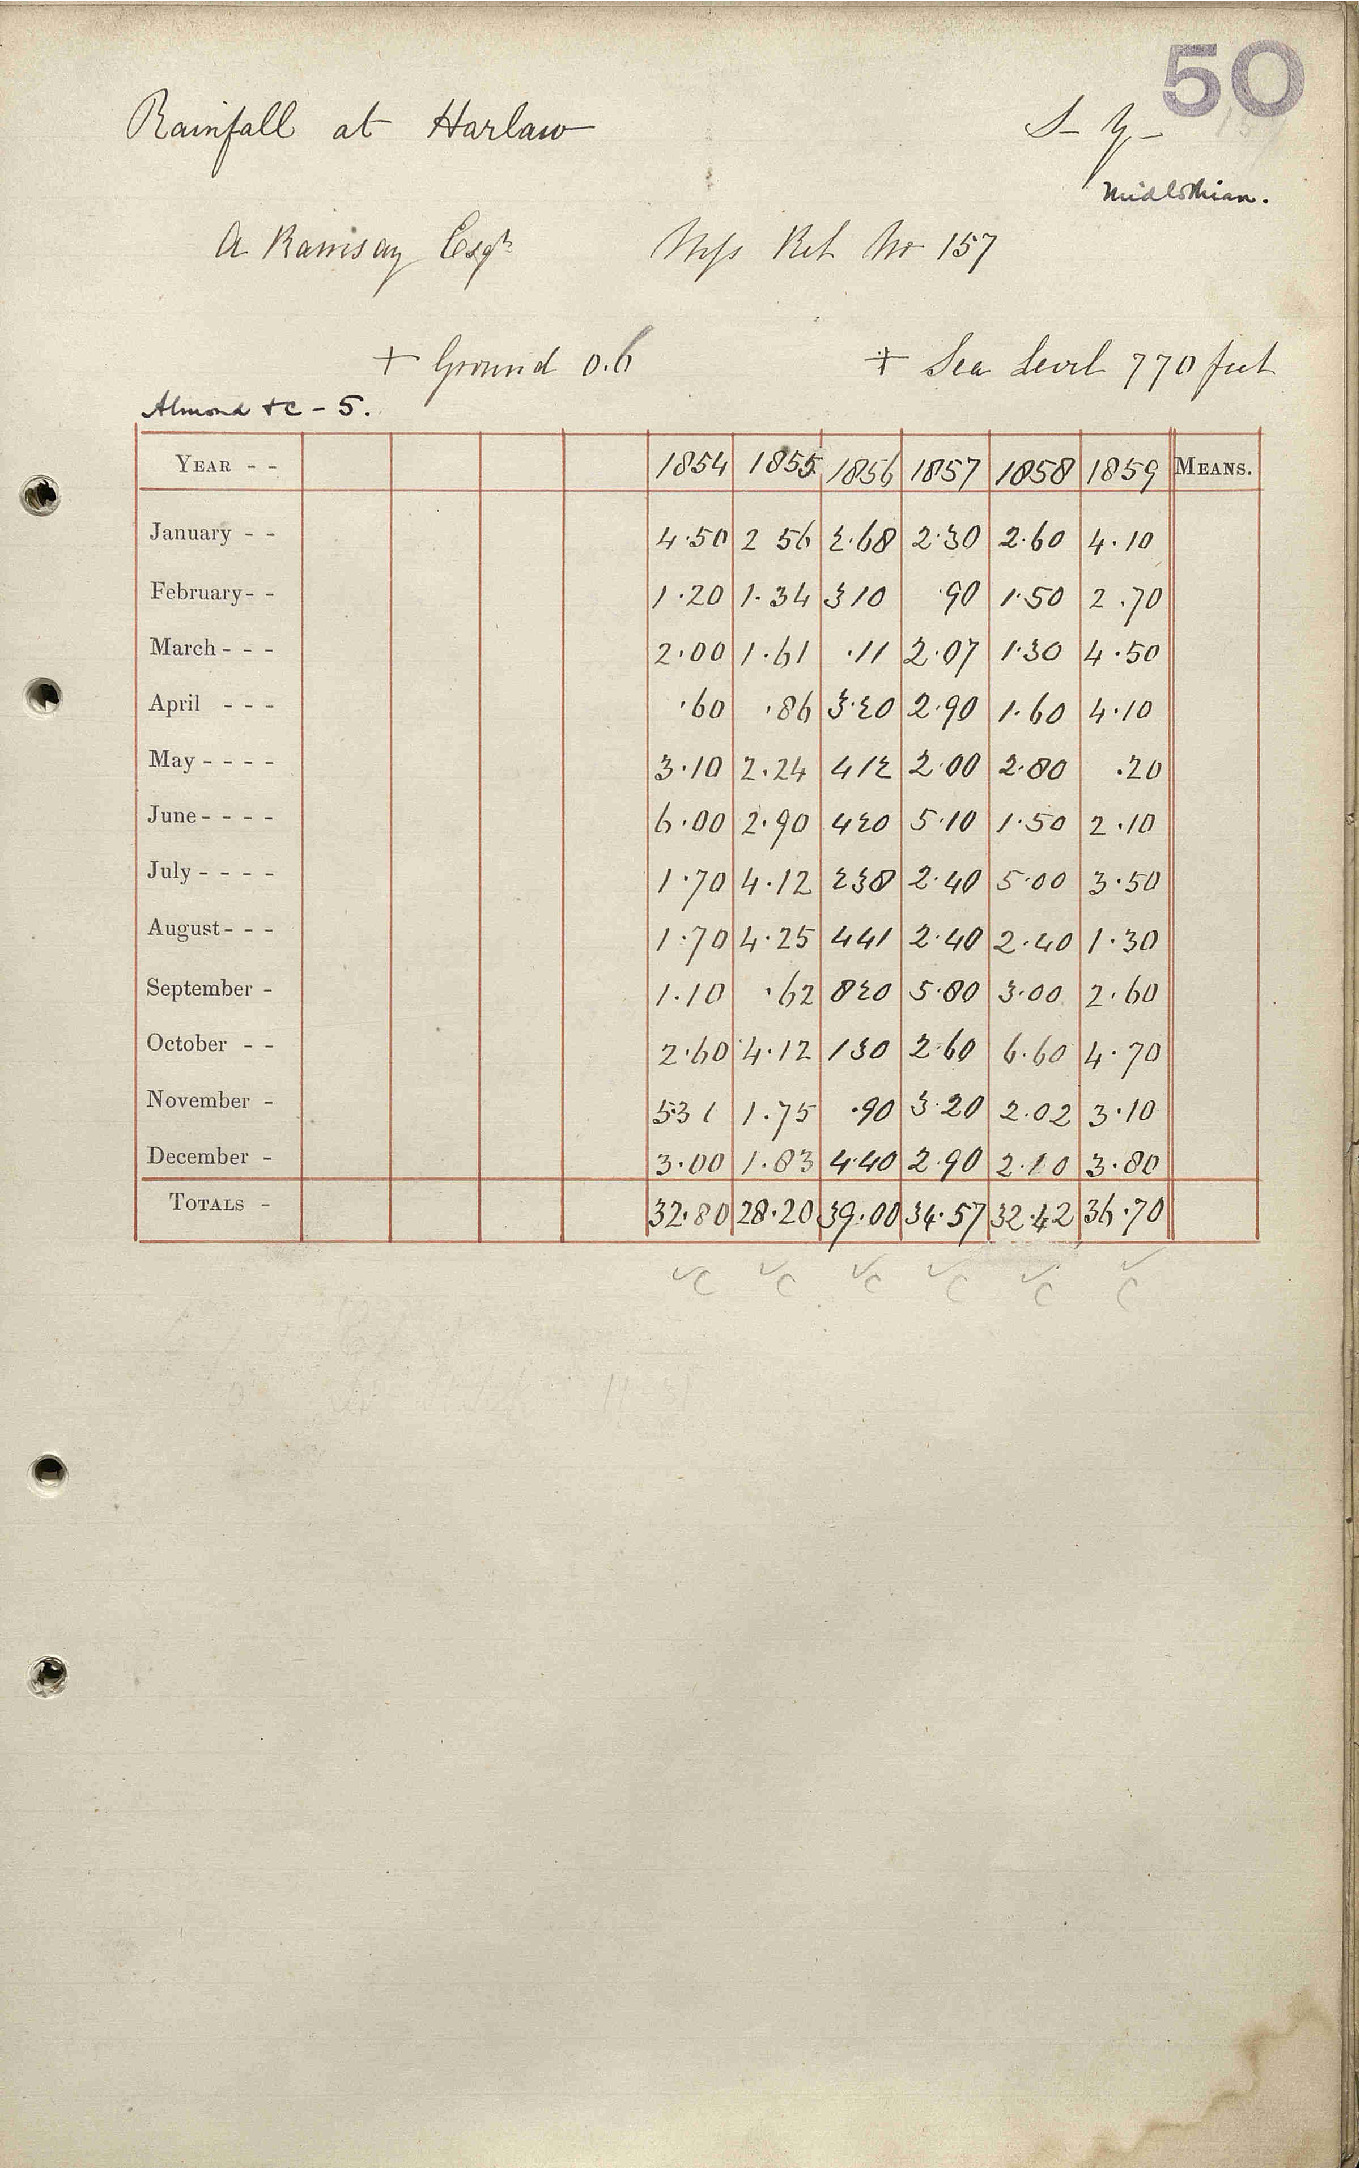 50
Rainfall at Harlaw
Midlothian.
A Ramsay Esqr Mss Ret No 157
+ Ground 0.6 + Sea Level 770 feet
Almond &c - 5.
YEAR - - 1854 1855 1856 1857 1858 1859 MEANS.
January - - 4.50 2 56 2.68 2.30 2.60 4.10
February - - 1.20 1.34 3 10 .90 1.50 2.70
March - - - 2.00 1.61 .11 2.07 1.30 4.50
April - - - .60 .86 3.20 2.90 1.60 4.10
May - - - - 3.10 2.24 4 12 2.00 2.80 .20
June - - - - 6.00 2.90 4 20 5.10 1.50 2.10
July - - - - 1.70 4.12 2 38 2.40 5.00 3.50
August - - - 1.70 4.25 4 41 2.40 2.40 1.30
September - 1.10 .62 8 20 5.80 3.00 2.60
October - - 2.60 4.12 1 30 2.60 6.60 4.70
November - 5.31 1.75 .90 3.20 2.02 3.10
December - 3.00 1.83 4.40 2.90 2.10 3.80
TOTALS - 32.80 28.20 39.00 34.57 32.42 36.70
✓C ✓C ✓C ✓C ✓C ✓C